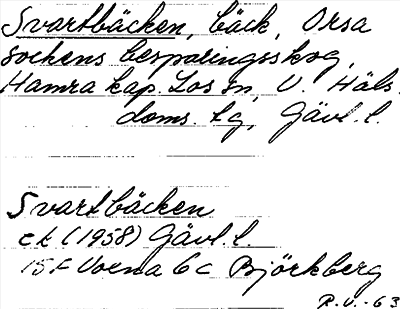 Svartbäcken, bäck, Orsa
sockens besparingsskog,
Hamra kap. Los sn, V. Häls.
doms. lg, Gävl. l.
Svartbäcken
ek (1958) Gävl. l.
15F Voxna 6c Björkberg
R.V.-63